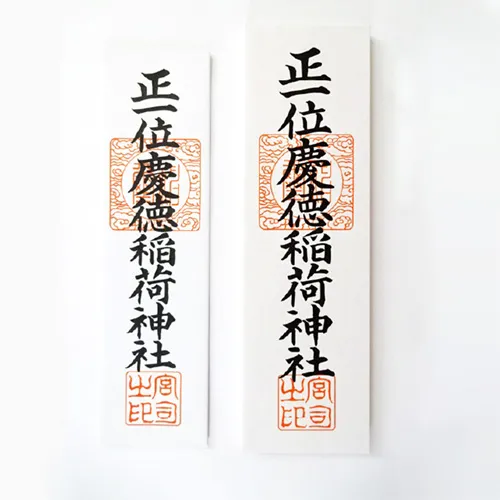 正一位慶徳稲荷神社
宮司之印
正一位慶徳稲荷神社
宮司之印